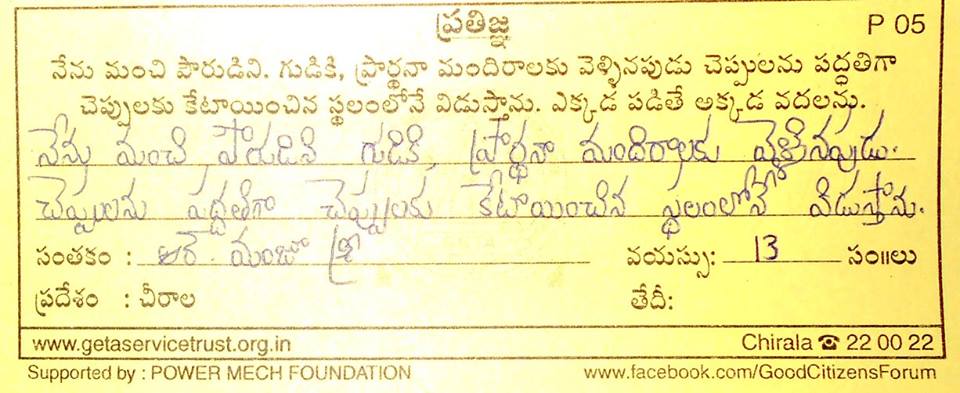 ప్రతిజ్ఞ
P 05
నేను మంచి పౌరుడిని. గుడికి, ప్రార్థనా మందిరాలకు వెళ్ళినపుడు చెప్పులను పద్ధతిగా
చెప్పులకు కేటాయించిన స్థలంలోనే విడుస్తాను. ఎక్కడ పడితే అక్కడ వదలను.
నేను మంచి పౌరుడిని గుడికి, ప్రార్థనా మందిరాలకు వెళ్ళినపుడు.
చెప్పులను పద్దతిగా చెప్పులకు కేటాయించిన స్థలంలోనే విడుస్తాను.
సంతకం : మంజు శ్రీ వయస్సు: 13 సం||లు
ప్రదేశం : చీరాల తేదీ:
www.getaservicetrust.org.in Chirala ☎ 22 00 22
Supported by : POWER MECH FOUNDATION www.facebook.com/GoodCitizensForum